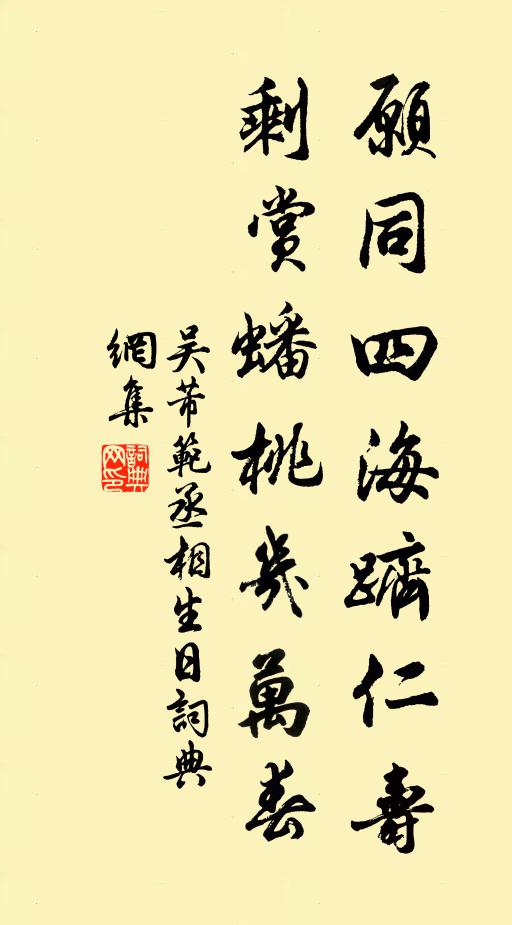 願同四海躋仁壽
剩賞蟠桃幾萬春
吳芾範丞相生日詞典
網集
詞典网印